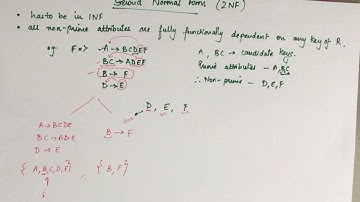 Second Normal Form (2NF)
• has to be in 1NF
• all non-prime attributes are fully functionally dependent on any key of R.
eg: F = > A → BCDEF
BC → ADEF
B → F
D → E
A, BC → candidate keys.
Prime attributes - A, BC
∴ Non-prime - D, E, F
A → BCDE
BC → ADE
D → E
B → F
D, E, F
{ A, B, C, D, E } , { B, F }